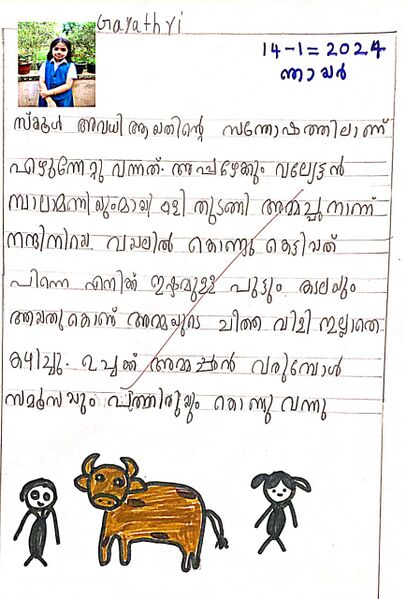 Gayathri
14-1-2024
ഞായർ
സ്കൂൾ അവധി ആയതിന്റെ സന്തോഷത്തിലാണ്
എഴുന്നേറ്റു വന്നത്. അപ്പഴേക്കും വല്യേട്ടൻ
ബാലാമണിയുംമായി കളി തുടങ്ങി അമ്മച്ചനാണ്
നന്ദിനിയെ വയലിൽ കൊണ്ടു കെട്ടിയത്
പിന്നെ എനിക്ക് ഇഷ്ടമുള്ള പുട്ടും കടലയും
ആയതുകൊണ്ട് അമ്മയുടെ ചീത്ത വിളി ഇല്ലാതെ
കഴിച്ചു. ഉച്ചക്ക് അമ്മച്ചൻ വരുമ്പോൾ
സമൂസയും പുത്തിരുയും കൊണ്ടു വന്നു